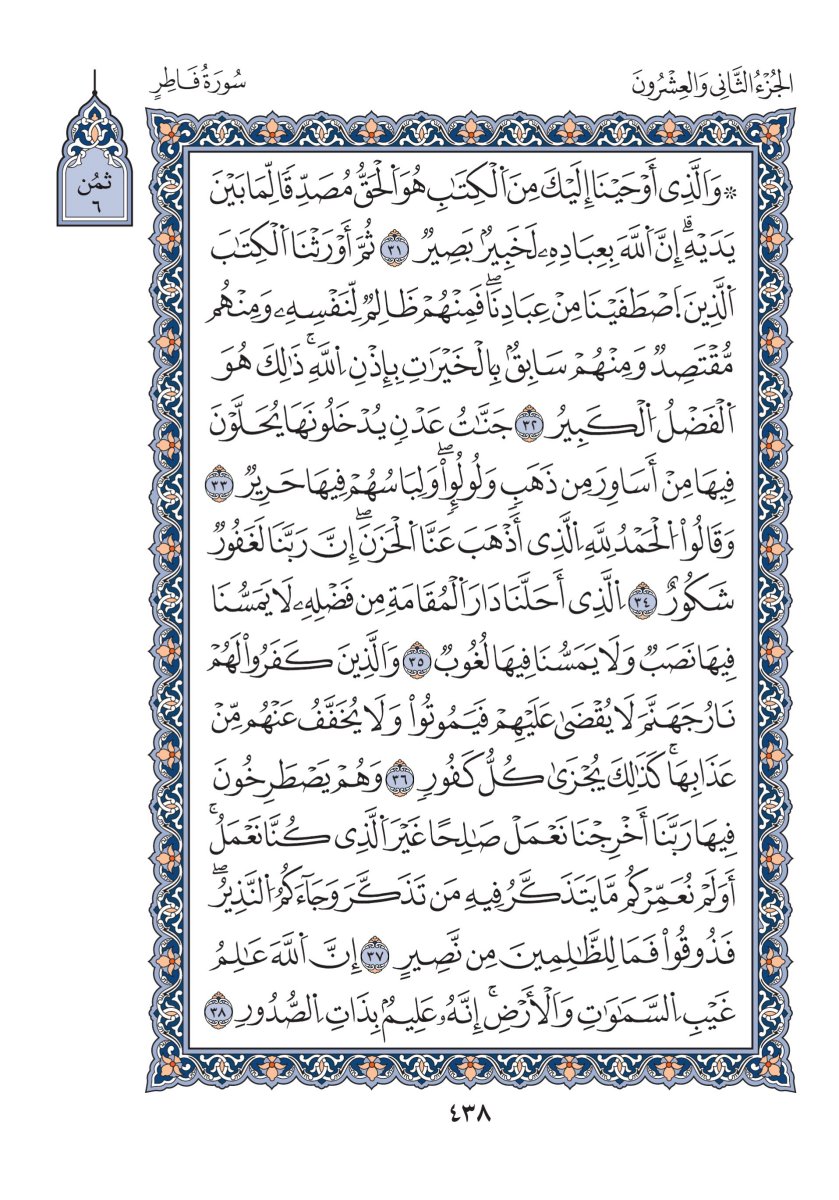 الجُزْءُ الثَّانِي وَالعِشْرُونَ
سُورَةُ فَاطِرٍ
ثُمُن
٦
۞ وَالَّذِي أَوْحَيْنَا إِلَيْكَ مِنَ اَ۬لْكِتَٰبِ هُوَ اَ۬لْحَقُّ مُصَدِّقًا لِّمَا بَيْنَ
يَدَيْهِۗ إِنَّ اَ۬للَّهَ بِعِبَادِهِۦ لَخَبِيرُۢ بَصِيرٌ ٣١ ثُمَّ أَوْرَثْنَا اَ۬لْكِتَٰبَ
اَ۬لَّذِينَ اَ۪صْطَفَيْنَا مِنْ عِبَادِنَاۖ فَمِنْهُمْ ظَالِمٌ لِّنَفْسِهِۦ وَمِنْهُم
مُّقْتَصِدٌ وَمِنْهُمْ سَابِقُۢ بِالْخَيْرَٰتِ بِإِذْنِ اِ۬للَّهِۚ ذَٰلِكَ هُوَ
اَ۬لْفَضْلُ اُ۬لْكَبِيرُ ٣٢ جَنَّٰتُ عَدْنٍ يُدْخَلُونَهَا يُحَلَّوْنَ
فِيهَا مِنْ أَسَاوِرَ مِن ذَهَبٍ وَلُولُؤٍاۖ وَلِبَاسُهُمْ فِيهَا حَرِيرٌ ٣٣
وَقَالُواْ اُ۬لْحَمْدُ لِلَّهِ اِ۬لَّذِي أَذْهَبَ عَنَّا اَ۬لْحَزَنَۖ إِنَّ رَبَّنَا لَغَفُورٌ
شَكُورٌ ٣٤ اِ۬لَّذِي أَحَلَّنَا دَارَ اَ۬لْمُقَامَةِ مِن فَضْلِهِۦ لَا يَمَسُّنَا
فِيهَا نَصَبٌ وَلَا يَمَسُّنَا فِيهَا لُغُوبٌ ٣٥ وَالَّذِينَ كَفَرُواْ لَهُمْ
نَارُ جَهَنَّمَ لَا يُقْضَىٰ عَلَيْهِمْ فَيَمُوتُواْ وَلَا يُخَفَّفُ عَنْهُم مِّنْ
عَذَابِهَاۚ كَذَٰلِكَ يُجْزَىٰ كُلُّ كَفُورٍ ٣٦ وَهُمْ يَصْطَرِخُونَ
فِيهَا رَبَّنَا أَخْرِجْنَا نَعْمَلْ صَٰلِحًا غَيْرَ اَ۬لَّذِي كُنَّا نَعْمَلُۚ
أَوَلَمْ نُعَمِّرْكُم مَّا يَتَذَكَّرُ فِيهِ مَن تَذَكَّرَ وَجَآءَكُمُ اُ۬لنَّذِيرُۖ
فَذُوقُواْ فَمَا لِلظَّٰلِمِينَ مِن نَّصِيرٍ ٣٧ إِنَّ اَ۬للَّهَ عَٰلِمُ
غَيْبِ اِ۬لسَّمَٰوَٰتِ وَالْأَرْضِۚ إِنَّهُۥ عَلِيمُۢ بِذَاتِ اِ۬لصُّدُورِ ٣٨
٤٣٨